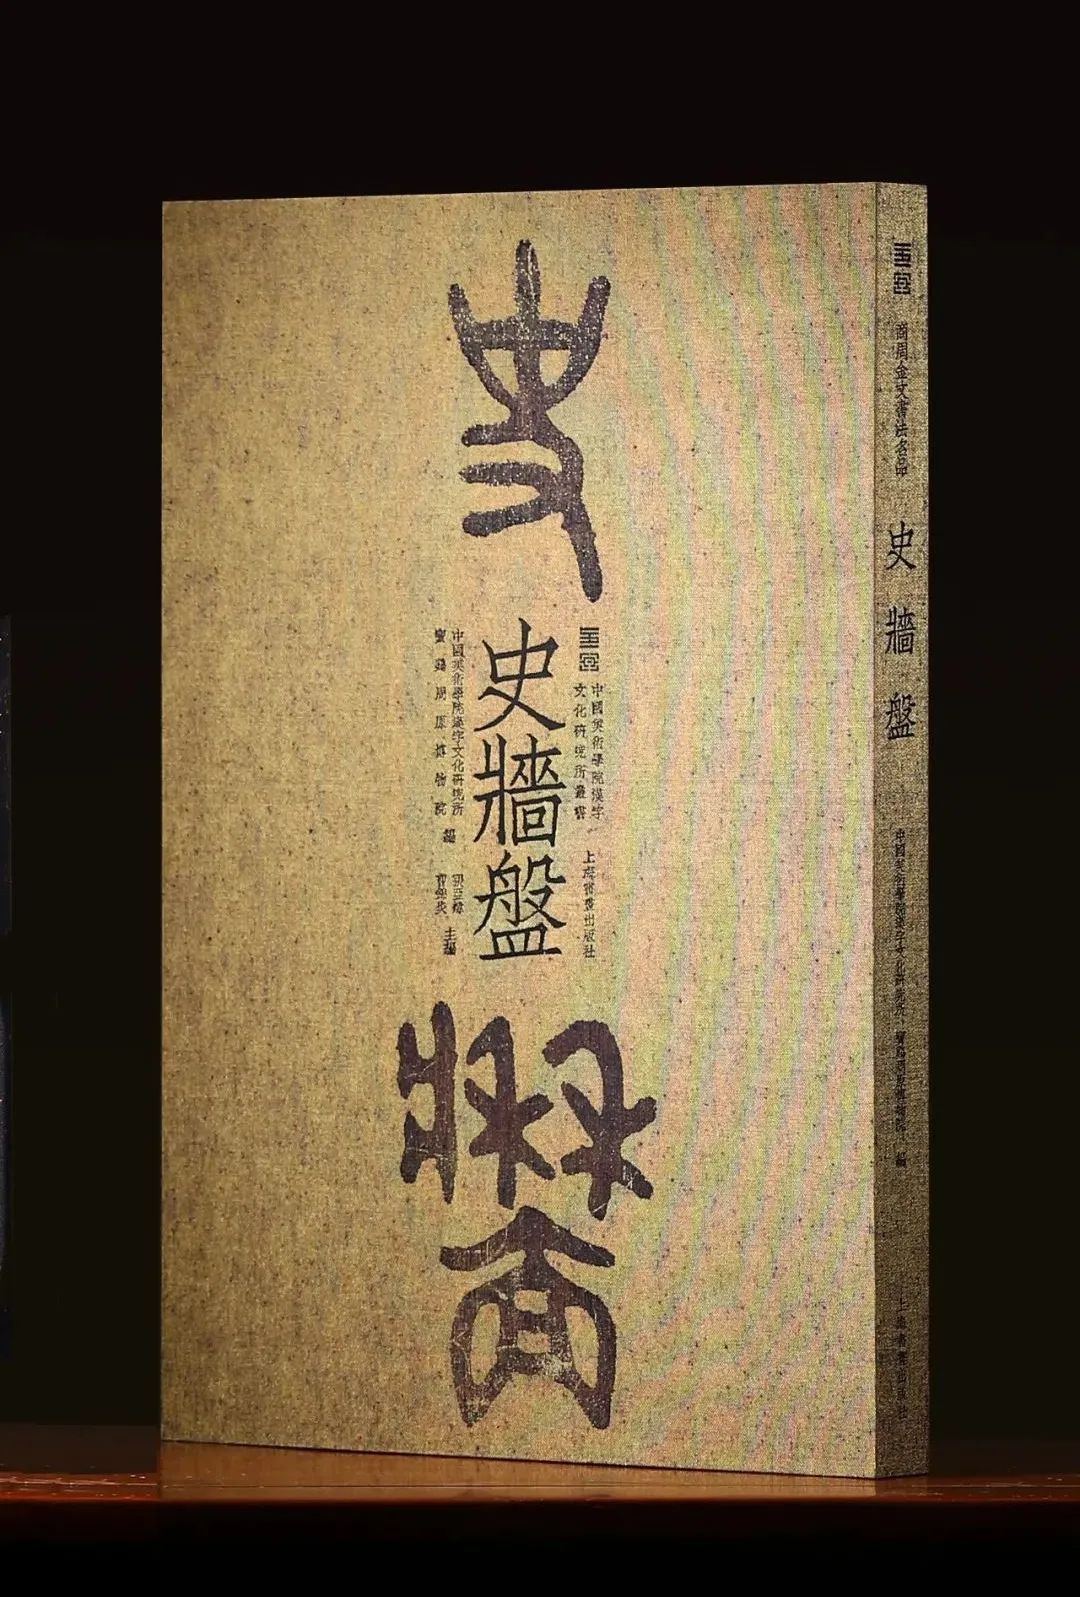 史
中國美術學院漢字
文化研究所叢書
上海書畫出版社
史牆盤
中國美術學院漢字文化研究所
寶雞周原博物院 編
主編
牆
商周金文書法名品
史牆盤
中國美術學院漢字文化研究所 寶雞周原博物院 編
上海書畫出版社